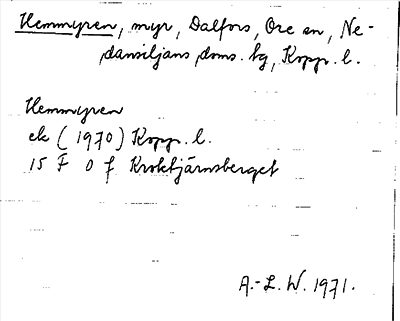 Hemmyren, myr, Dalfors, Ore sn, Ne-
dansiljans doms. hg, Kopp. l.
Hemmyren
ek (1970) Kopp. l.
15 F 0 f Kroktjärnsberget
A.-L. W. 1971.